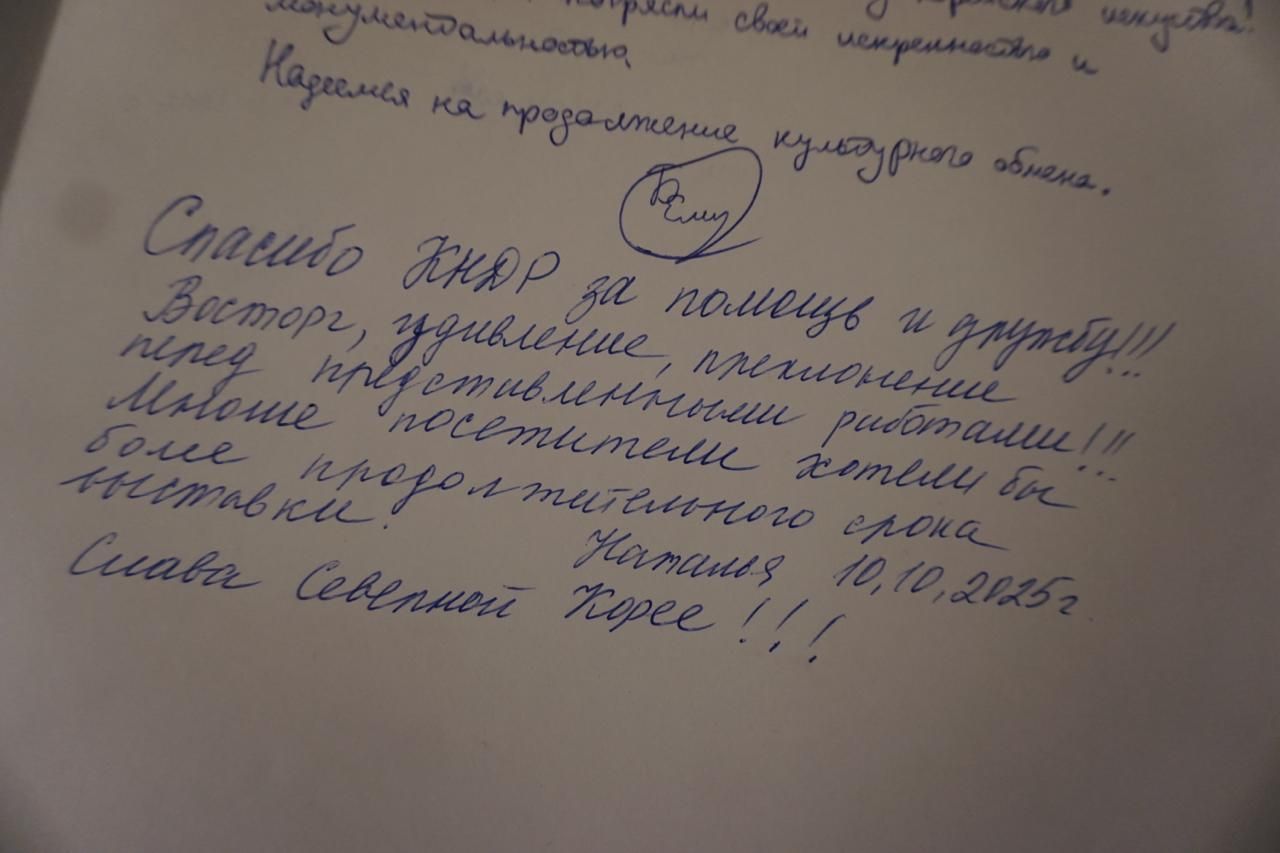 потрясли своей искренностью и
монументальностью.
Надеемся на продолжение культурного обмена.
Спасибо КНДР за помощь и дружбу!!!
Восторг, удивление, преклонение
перед представленными работами!!!
Многие посетители хотели бы
более продолжительного срока
выставки.
Наталья 10,10,2025г
Слава Северной Корее!!!